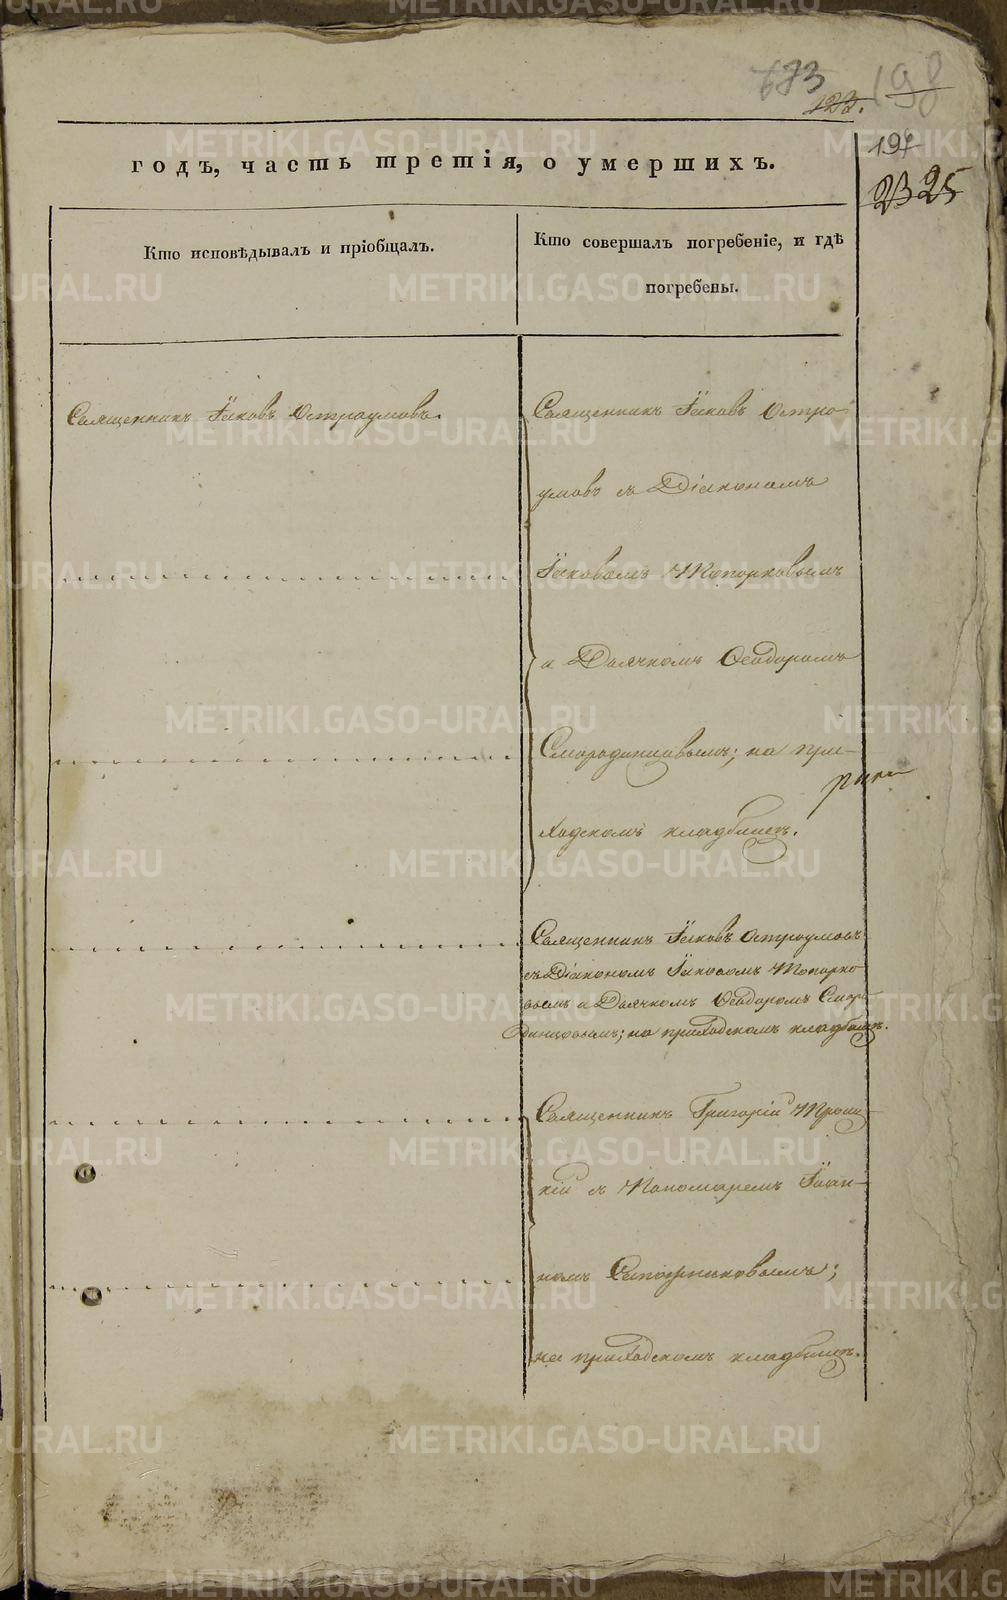 673
198
123.
197
23 25
годъ, часть третія, о умершихъ.
Кто исповѣдывалъ и пріобщалъ.
Кто совершалъ погребеніе, и гдѣ
погребены.
Священникъ Іаковъ Остроумовъ.
Священникъ Іаковъ Остро-
умовъ съ Діакономъ
Іаковомъ Топорковымъ
и Дьячкомъ Ѳеодоромъ
Смородинцовымъ; на при-
ходскомъ кладбищѣ.
Священникъ Іаковъ Остроумовъ
съ Діакономъ Іаковомъ Топорко-
вымъ и Дьячкомъ Ѳеодоромъ Смор-
одинцовымъ; на приходскомъ кладбищѣ.
Священникъ Григорій Троиц-
кій съ Пономаремъ Іоан-
номъ Сапожниковымъ;
на приходскомъ кладбищѣ.
METRIKI.GASO-URAL.RU